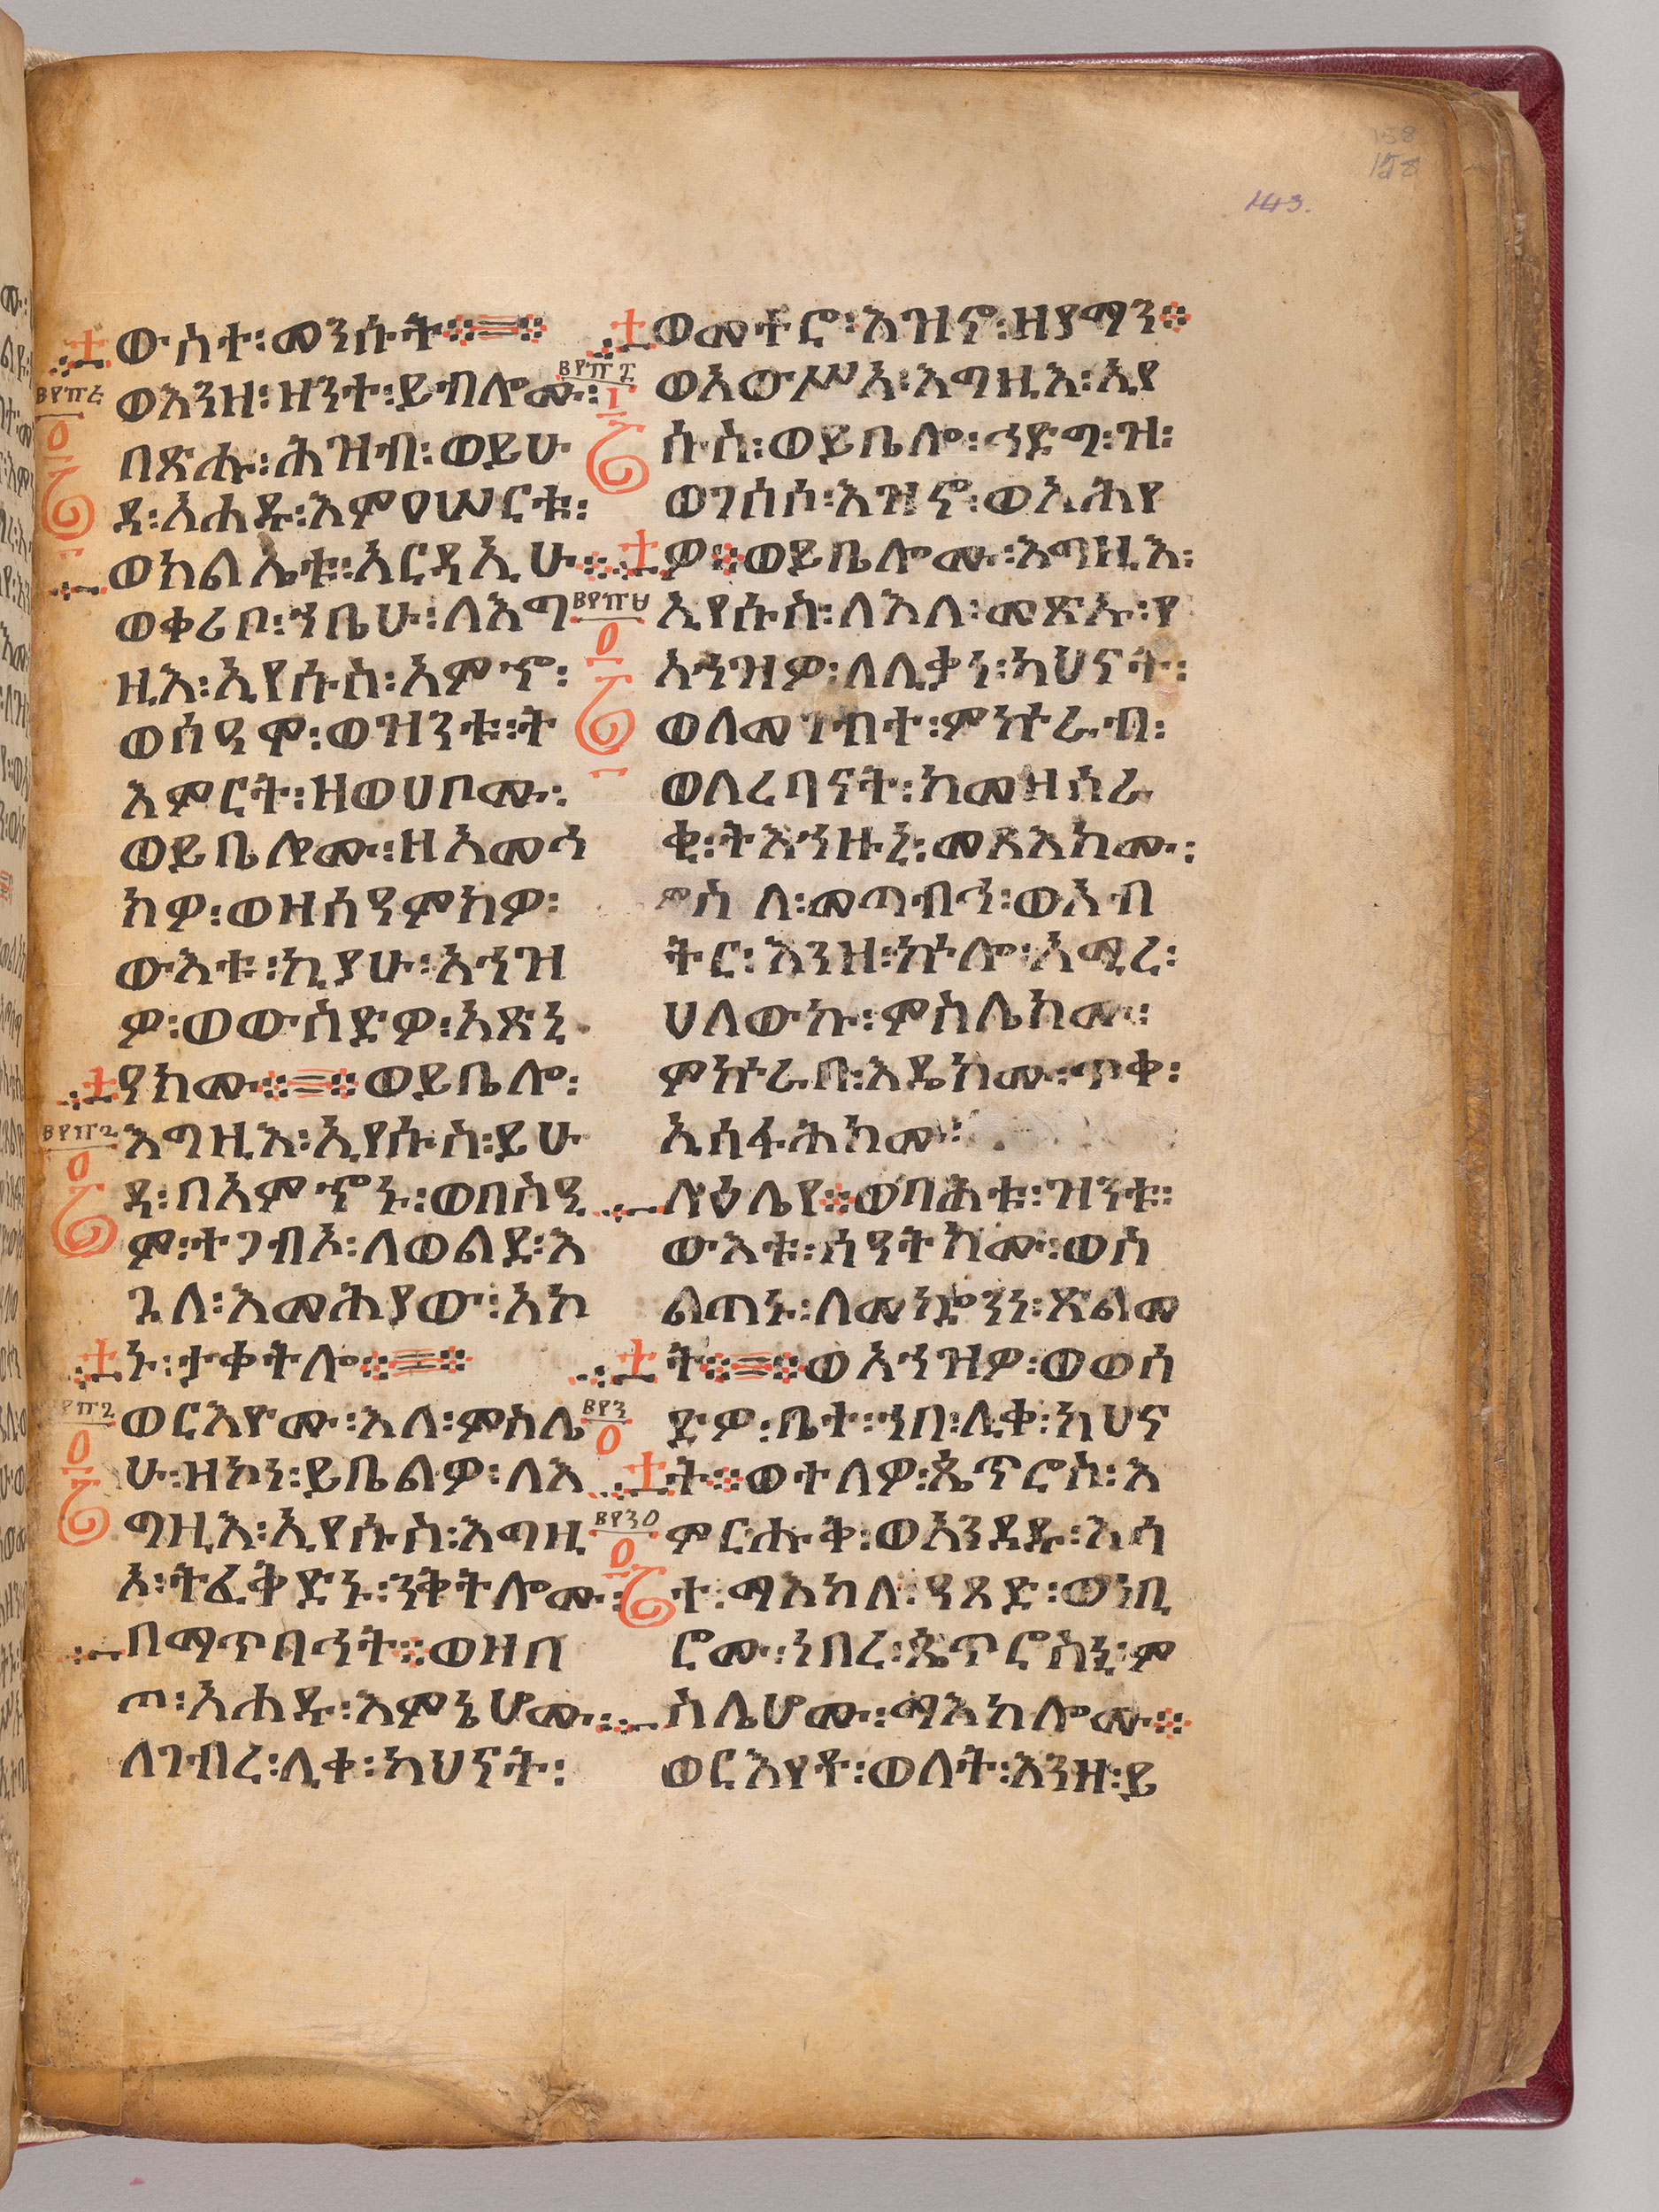 158
158
143.
ውስተ፡መንሱት
ወእንዘ፡ዘንተ፡ይብሎሙ፡
በጽሑ፡ሕዝብ፡ወይሁ
ዳ፡አሐዱ፡እምዐሠርቱ፡
ወክልኤቱ፡አርዳኢሁ
ወቀሪቦ፡ኀቤሁ፡ለእግ
ዚእ፡ኢየሱስ፡አምኆ፡
ወሰዓሞ፡ወዝንቱ፡ት
እምርት፡ዘወሀቦሙ፡
ወይቤሎሙ፡ዘአመሳ
ክዎ፡ወዘሰዓምክዎ፡
ውእቱ፡ኪያሁ፡አኀዝ
ዎ፡ወውስድዎ፡አጽኒ
ዓክሙ፡ወይቤሎ፡
እግዚእ፡ኢየሱስ፡ይሁ
ዳ፡በአምኆኑ፡ወበስዒ
ም፡ተገብኦ፡ለወልደ፡እ
ጓለ፡እመሕያው፡አኮ
ኑ፡ታቀትሎ
ወርእዮሙ፡እለ፡ምስሌ
ሁ፡ዝኮነ፡ይቤልዎ፡ለእ
ግዚእ፡ኢየሱስ፡እግዚ
ኦ፡ትፈቅድኑ፡ንቅትሎሙ፡
በማጥባኅት፡ወዘበ
ጦ፡አሐዱ፡እምኔሆሙ፡
ለገብረ፡ሊቀ፡ካህናት፡
ወመተሮ፡እዝኖ፡ዘያማን
ወአውሥአ፡እግዚእ፡ኢየ
ሱስ፡ወይቤሎ፡ኅድግ፡ዝ፡
ወገሰሶ፡እዝኖ፡ወአሕየ
ዎ፡ወይቤሎሙ፡እግዚእ፡
ኢየሱስ፡ለእለ፡መጽኡ፡የ
አኀዝዎ፡ለሊቃነ፡ካህናት፡
ወለመገብተ፡ምኵራብ፡
ወለረባናት፡ከመዘሰራ
ቂ፡ትእኅዙኒ፡መጻእክሙ፡
ምስለ፡መጣብኅ፡ወእብ
ትር፡እንዘ፡ኵሎ፡አሚረ፡
ሀለውኩ፡ምስሌክሙ፡
ምኵራበ፡እዴክሙ፡ጥቀ፡
ኢሰፋሕክሙ፡
ላዕሌየ፡ወባሕቱ፡ዝንቱ፡
ውእቱ፡ሰዓትክሙ፡ወሰ
ልጣኑ፡ለመኰንነ፡ጽልመ
ት፡ወአኀዝዎ፡ወወሰ
ድዎ፡ቤተ፡ኀበ፡ሊቀ፡ካህና
ት፡ወተለዎ፡ጴጥሮስ፡እ
ምርሑቅ፡ወአንደዱ፡እሳ
ተ፡ማእከለ፡ዓጸድ፡ወነቢ
ሮሙ፡ነበረ፡ጴጥሮስኒ፡ም
ስሌሆሙ፡ማእከሎሙ
ወርእየቶ፡ወለት፡እንዘ፡ይ